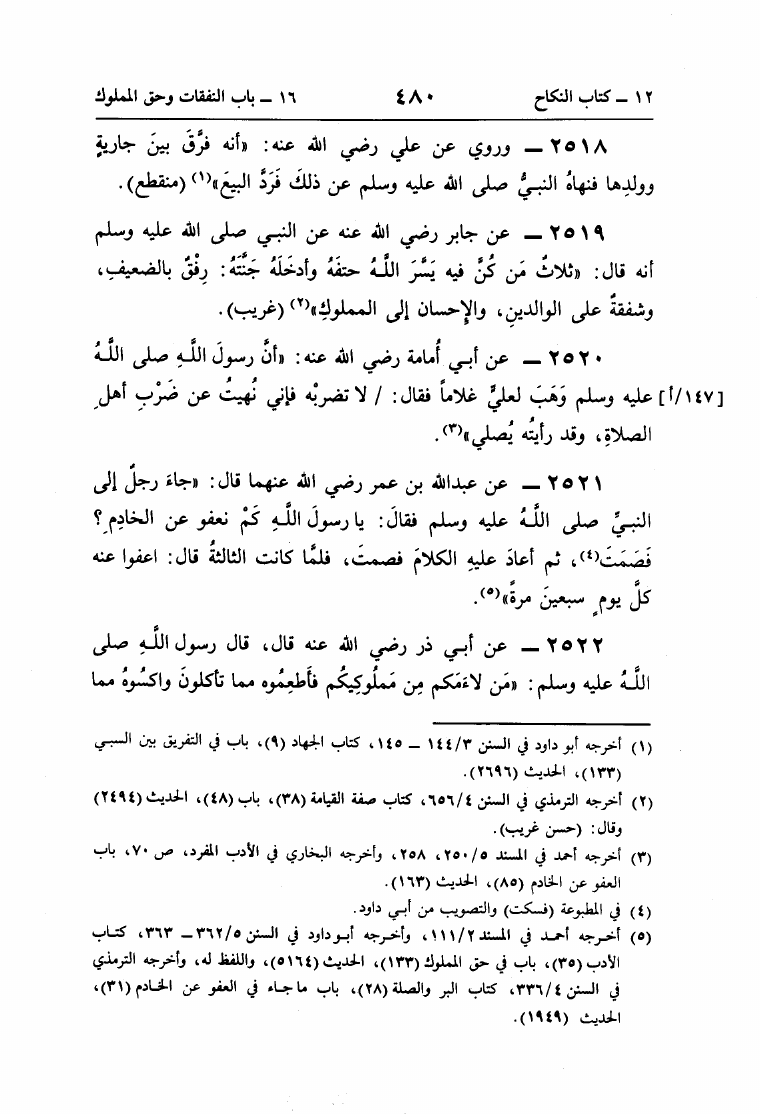 ١٢ ـ كتاب النكاح ٤٨٠ ١٦ ـ باب النفقات وحق المملوك
٢٥١٨ ـ وروي عن علي رضي الله عنه: «أنه فرَّقَ بينَ جاريةٍ
وولدِها فنهاهُ النبيُّ صلى الله عليه وسلم عن ذلكَ فَرَدَّ البيعَ»(١) (منقطع).
٢٥١٩ ـ عن جابر رضي الله عنه عن النبي صلى الله عليه وسلم
أنه قال: «ثلاثٌ مَن كُنَّ فيه يَسَّرَ اللَّهُ حتفَهُ وأدخَلَهُ جَنَّتَهُ: رِفْقٌ بالضعيفِ،
وشفقةٌ على الوالدينِ، والإِحسان إلى المملوكِ»(٢) (غريب).
٢٥٢٠ ـ عن أبي أُمامة رضي الله عنه: «أنَّ رسولَ اللَّهِ صلى اللَّهُ
[١٤٧/أ] عليه وسلم وَهَبَ لعليٍّ غلاماً فقال: / لا تضربْه فإني نُهيتُ عن ضَرْبِ أهلِ
الصلاةِ، وقد رأيتُه يُصلي»(٣).
٢٥٢١ ـ عن عبدالله بن عمر رضي الله عنهما قال: «جاءَ رجلٌ إلى
النبيِّ صلى اللَّهُ عليه وسلم فقالَ: يا رسولَ اللَّهِ كَمْ نعفو عن الخادِمِ؟
فَصَمَتَ(٤)، ثم أعادَ عليهِ الكلامَ فصمتَ، فلمَّا كانت الثالثةُ قال: اعفوا عنه
كلَّ يومٍ سبعينَ مرةً»(٥).
٢٥٢٢ ـ عن أبي ذر رضي الله عنه قال، قال رسول اللَّهِ صلى
اللَّهُ عليه وسلم: «مَن لاءَمَكم مِن مَملُوكِيكُم فأَطعِمُوه مما تأكلونَ واكسُوهُ مما
(١) أخرجه أبو داود في السنن ١٤٤/٣ ـ ١٤٥، كتاب الجهاد (٩)، باب في التفريق بين السبي
(١٣٣)، الحديث (٢٦٩٦).
(٢) أخرجه الترمذي في السنن ٦٥٦/٤، كتاب صفة القيامة (٣٨)، باب (٤٨)، الحديث (٢٤٩٤)
وقال: (حسن غريب).
(٣) أخرجه أحمد في المسند ٢٥٠/٥، ٢٥٨، وأخرجه البخاري في الأدب المفرد، ص ٧٠، باب
العفو عن الخادم (٨٥)، الحديث (١٦٣).
(٤) في المطبوعة (فسكت) والتصويب من أبي داود.
(٥) أخرجه أحمد في المسند ١١١/٢، وأخرجه أبو داود في السنن ٣٦٢/٥ ـ ٣٦٣، كتاب
الأدب (٣٥)، باب في حق المملوك (١٣٣)، الحديث (٥١٦٤)، واللفظ له، وأخرجه الترمذي
في السنن ٣٣٦/٤، كتاب البر والصلة (٢٨)، باب ما جاء في العفو عن الخادم (٣١)،
الحديث (١٩٤٩).